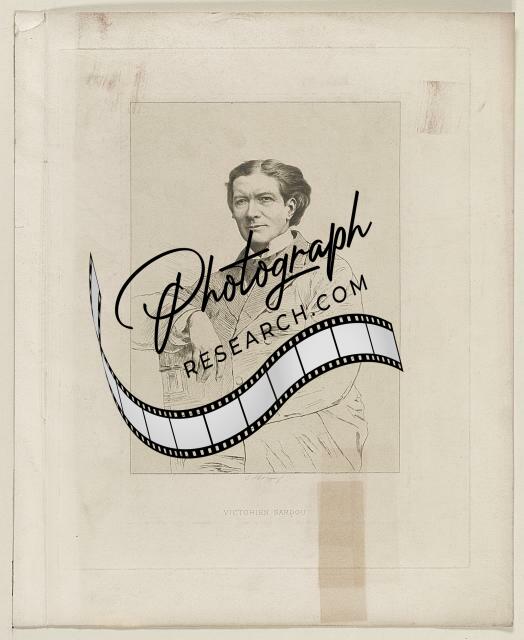 Photograph
RESEARCH.COM
VICTORIEN SARDOU